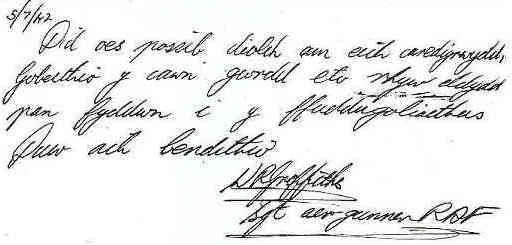 5/7/42
Did oes possib diolch am eich caredigrwydd,
Gobeithio y cawn gwrdd eto rhyw ddydd
pan fyddwn i y
Duw aich bendithio
D R Griffiths
Sgt air gunner RAF